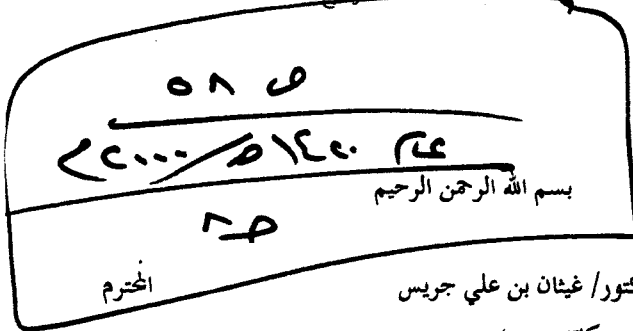 ص ٥٨
عام ١٤٢٠ه/٢٠٠٠م
بسم الله الرحمن الرحيم
ص ٨
كتور/ غيثان بن علي جريس المحترم